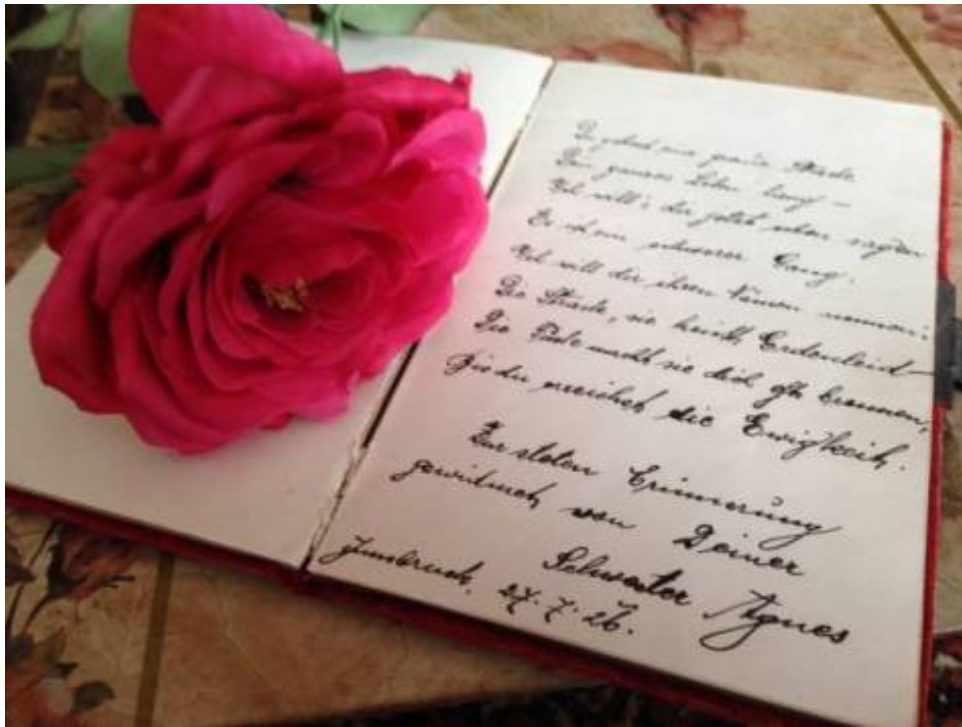 Du gehst eine graue Straße
Dein ganzes Leben lang –
Ich will's dir jetzt schon sagen
Es ist ein schwerer Gang.
Ich will dir ihren Namen nennen:
Die Straße, sie heißt Erdenleid –
Die Füße macht sie dich oft brennen,
Bis du erreichst die Ewigkeit.
Zur steten Erinnerung
gewidmet von Deiner
Schwester Agnes
Innsbruck, 27. 7. 26.